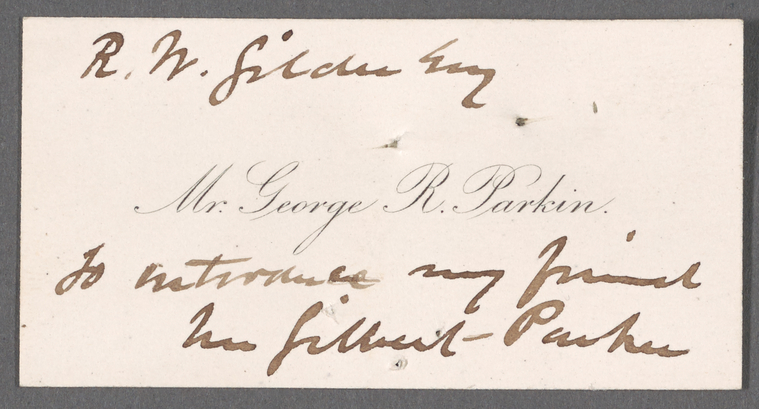 R. W. Gilder Esq
Mr. George R. Parkin.
To introduce my friend
Mr Gilbert Parker